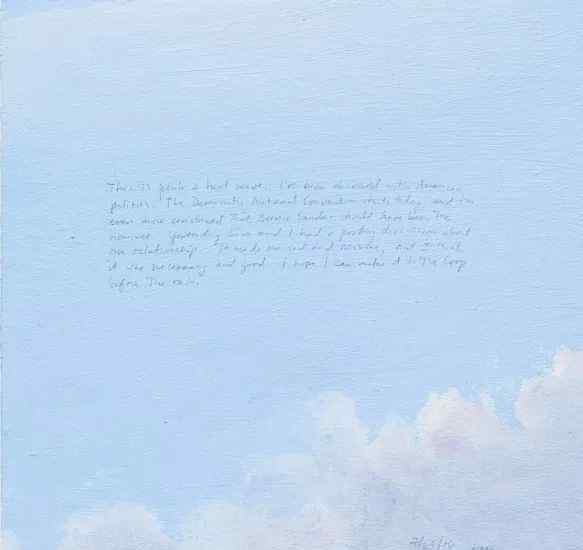 This is quite a heat wave. I've been obsessed with American
politics. The Democratic National Convention starts today, and I'm
even more convinced that Bernie Sanders should have been the
nominee. Yesterday, and I had a discussion about
our relationship. made me sad and but
it was necessary and good. I hope I can make it to the Coop
before the rain.
7/25/16